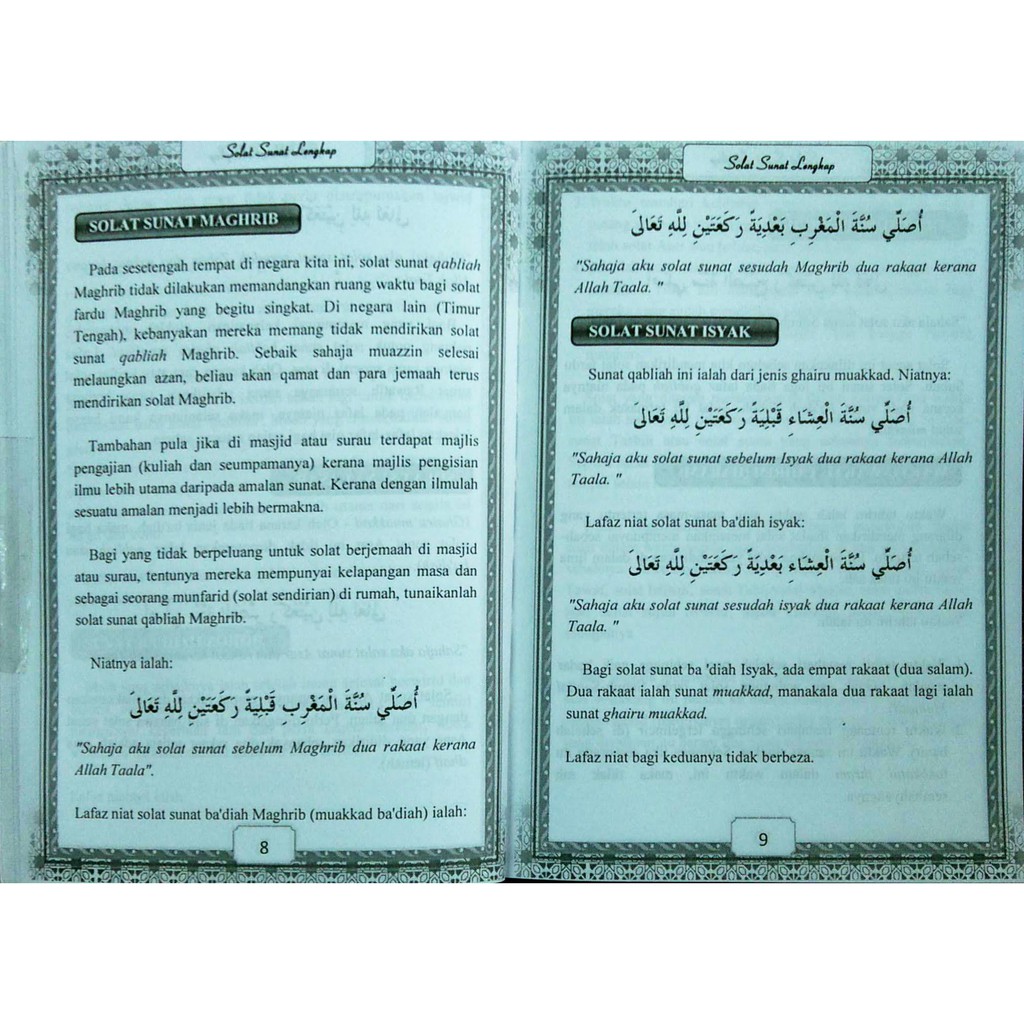 Solat Sunat Lengkap
SOLAT SUNAT MAGHRIB
Pada sesetengah tempat di negara kita ini, solat sunat qabliah
Maghrib tidak dilakukan memandangkan ruang waktu bagi solat
fardu Maghrib yang begitu singkat. Di negara lain (Timur
Tengah), kebanyakan mereka memang tidak mendirikan solat
sunat qabliah Maghrib. Sebaik sahaja muazzin selesai
melaungkan azan, beliau akan qamat dan para jemaah terus
mendirikan solat Maghrib.
Tambahan pula jika di masjid atau surau terdapat majlis
pengajian (kuliah dan seumpamanya) kerana majlis pengisian
ilmu lebih utama daripada amalan sunat. Kerana dengan ilmulah
sesuatu amalan menjadi lebih bermakna.
Bagi yang tidak berpeluang untuk solat berjemaah di masjid
atau surau, tentunya mereka mempunyai kelapangan masa dan
sebagai seorang munfarid (solat sendirian) di rumah, tunaikanlah
solat sunat qabliah Maghrib.
Niatnya ialah:
أُصَلِّي سُنَّةَ الْمَغْرِبِ قَبْلِيَةً رَكَعَتَيْنِ لِلَّهِ تَعَالَىَ
"Sahaja aku solat sunat sebelum Maghrib dua rakaat kerana
Allah Taala".
Lafaz niat solat sunat ba'diah Maghrib (muakkad ba'diah) ialah:
8
Solat Sunat Lengkap
أُصَلِّي سُنَّةَ الْمَغْرِبِ بَعْدِيَةً رَكَعَتَيْنِ لِلَّهِ تَعَالَىَ
"Sahaja aku solat sunat sesudah Maghrib dua rakaat kerana
Allah Taala. "
SOLAT SUNAT ISYAK
Sunat qabliah ini ialah dari jenis ghairu muakkad. Niatnya:
أُصَلِّي سُنَّةَ الْعِشَاءِ قَبْلِيَةً رَكَعَتَيْنِ لِلَّهِ تَعَالَىَ
"Sahaja aku solat sunat sebelum Isyak dua rakaat kerana Allah
Taala. "
Lafaz niat solat sunat ba'diah isyak:
أُصَلِّي سُنَّةَ الْعِشَاءِ بَعْدِيَةً رَكَعَتَيْنِ لِلَّهِ تَعَالَىَ
"Sahaja aku solat sunat sesudah isyak dua rakaat kerana Allah
Taala. "
Bagi solat sunat ba 'diah Isyak, ada empat rakaat (dua salam).
Dua rakaat ialah sunat muakkad, manakala dua rakaat lagi ialah
sunat ghairu muakkad.
Lafaz niat bagi keduanya tidak berbeza.
9